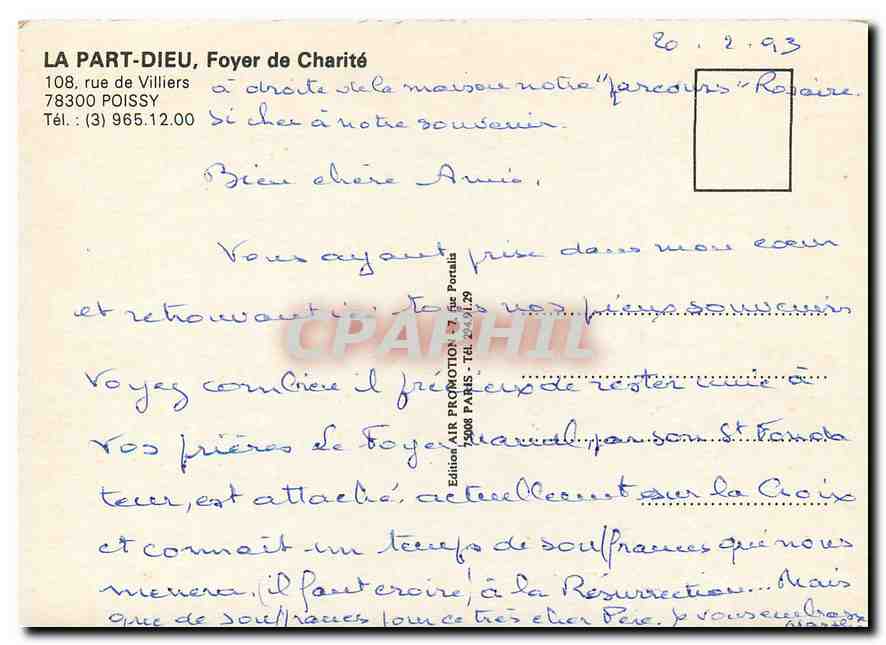 20.2.93
LA PART-DIEU, Foyer de Charité
108, rue de Villiers
78300 POISSY
Tél. : (3) 965.12.00
à droite de la maison notre "parcours" Rosaire.
si cher à notre souvenir.
Bien chère Amie,
Vous ayant prise dans mon cœur
et retrouvant ici tous nos pieux souvenirs
Voyez combien il précieux de rester unie à
vos prières Le Foyer par son St Fonda
teur, est attaché actuellement sur la Croix
et connait un temps de souffrances qui nous
menera, (il faut croire) à la Résurrection... Mais
que de souffrances pour ce très cher Père. Je vous embrasse
Edition AIR PROMOTION - 7, rue Portalis
75008 PARIS - Tél. 294.91.29
CPAPHIL